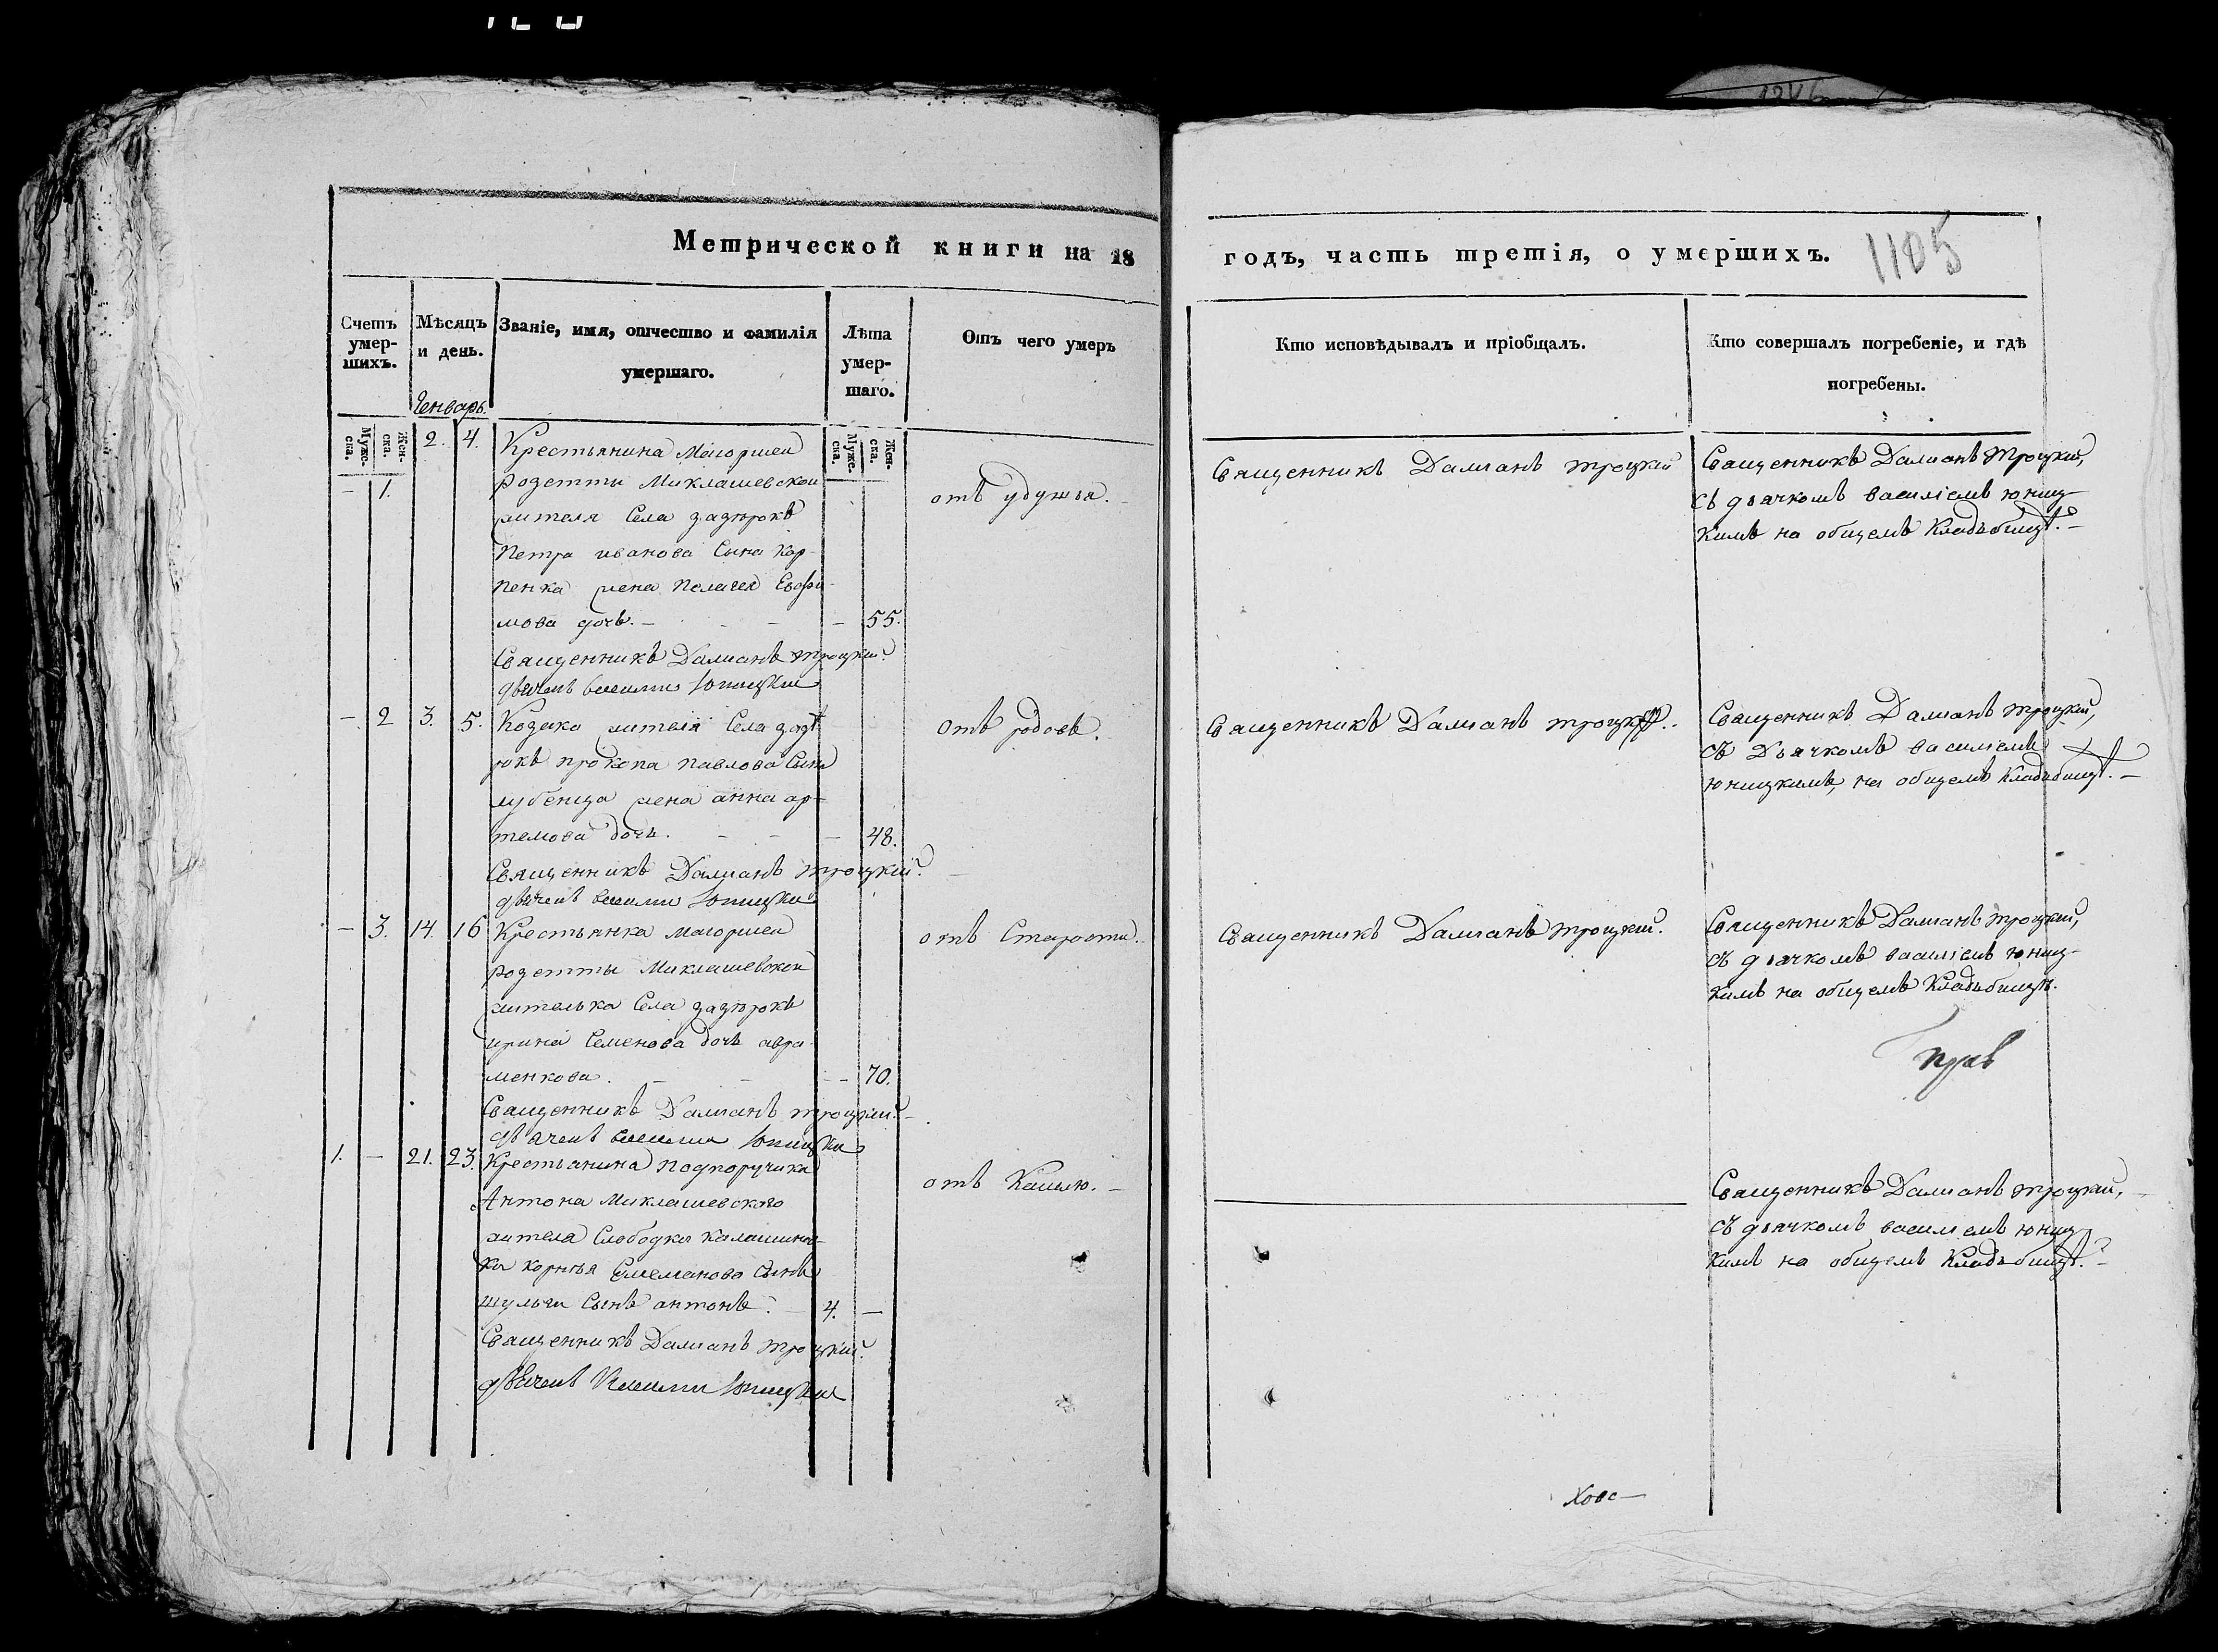 Метрической книги на 18
годъ, часть третія, о умершихъ.
1105
Счетъ умер-шихъ.
Мѣсяцъ и день.
Званіе, имя, отчество и фамилія умершаго.
Лѣта умер-шаго.
Отъ чего умеръ
Кто исповѣдывалъ и пріобщалъ.
Кто совершалъ погребеніе, и гдѣ погребены.
Генварь.
Муже-ска.
Жен-ска.
Муже-ска.
Жен-ска.
- 1. 2. 4.
Крестьянина Маіоршеи
розетты Миклашевской
жителя Села задѣрокъ
Петра иванова Сына Кар-
пенка жена Пелагея Евфи-
мова дочь. - - 55.
Священникъ Даміанъ Троцкій.
дьячекъ василий Юницкий
отъ удушья.
Священникъ Даміанъ Троцкій
Священникъ Даміанъ Троцкій,
съ дьячкомъ василіемъ юниц-
кимъ на общемъ Кладьбищѣ. -
- 2 3. 5.
Козака жителя Села задѣ
рокъ прокопа павлова Сына
лубенца жена анна ар-
темова дочь. - - 48.
Священникъ Даміанъ Троцкій.
дьячекъ василий Юницкий
отъ родовъ.
Священникъ Даміанъ Троцкій.
Священникъ Даміанъ Троцкій,
съ Дьячкомъ василіемъ
юницкимъ, на общемъ Кладьбищѣ. -
- 3. 14. 16
Крестьянка Маіоршеи
розетты Миклашевской
жителька Села задѣрокъ
ирина Семенова дочь авра-
менкова. - - 70.
Священникъ Даміанъ Троцкій.
дьячекъ василий Юницкий
отъ Старости.
Священникъ Даміанъ Троцкій.
Священникъ Даміанъ Троцкій,
съ дьячкомъ василіемъ юниц-
кимъ на общемъ Кладьбищѣ.
1. - 21. 23.
Крестьянина подпоручика
Антона Миклашевского
жителя Слободки Калашинов-
ки корнѣя Емельянова Сына
шульги Сынъ антонъ. - 4. -
Священникъ Даміанъ Троцкій.
дьячекъ Василий Юницкий
отъ Кашлю. -
Священникъ Даміанъ Троцкій,
съ дьячкомъ василіемъ юниц
кимъ на общемъ Кладьбищѣ. -